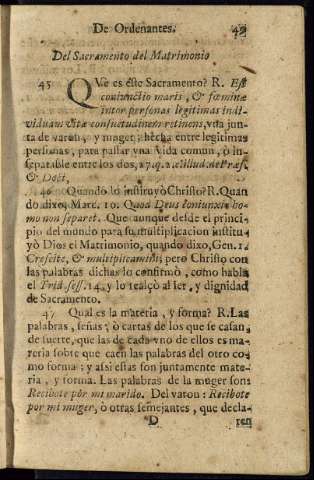 De Ordenantes. 49
Del Sacramento del Matrimonio
45 QVe es este Sacramento? R. Est
coniunctio maris, & fœminæ
inter personas legitimas indi-
viduam vitæ consuetudinem retinens, vna jun-
ta de varon, y muger, hecha entre legitimas
personas, para passar vna vida comun, ò in-
separable entre los dos, 27. q. 2.
& Doct.
46 Quando lo instituyò Christo? R. Quan
do dixo, Marc. 10. Quod Deus coniunxit, ho-
mo non separet. Que aunque desde el princi-
pio del mundo para su multiplicacion institu-
yò Dios el Matrimonio, quando dixo, Gen. 1.
Crescite, & multiplicamini; pero Christo con
las palabras dichas lo confirmò, como habla
el Trid. sess. 24. y lo realçò al ser, y dignidad
de Sacramento.
47 Qual es la materia, y forma? R. Las
palabras, señas, ò cartas de los que se casan,
de suerte, que las de cada vno de ellos es ma-
teria sobre que caen las palabras del otro co-
mo forma; y assi estas son juntamente mate-
ria, y forma. Las palabras de la muger son:
Recibote por mi marido. Del varon: Recibote
por mi muger, ò otras semejantes, que decla-
D ren